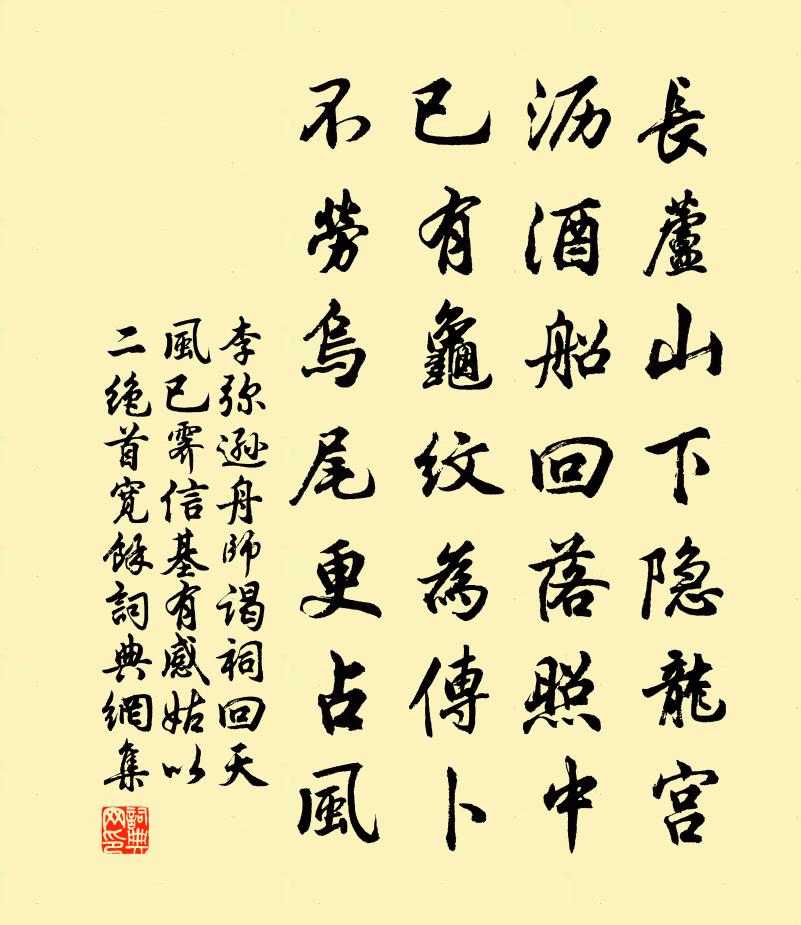 長蘆山下隐龍宫
沥酒船回落照中
已有龜紋為傳卜
不勞烏尾更占風
李弥遜舟師谒祠回天
風已霽信基有感姑以
二绝首寬餘詞典網集
詞典网印